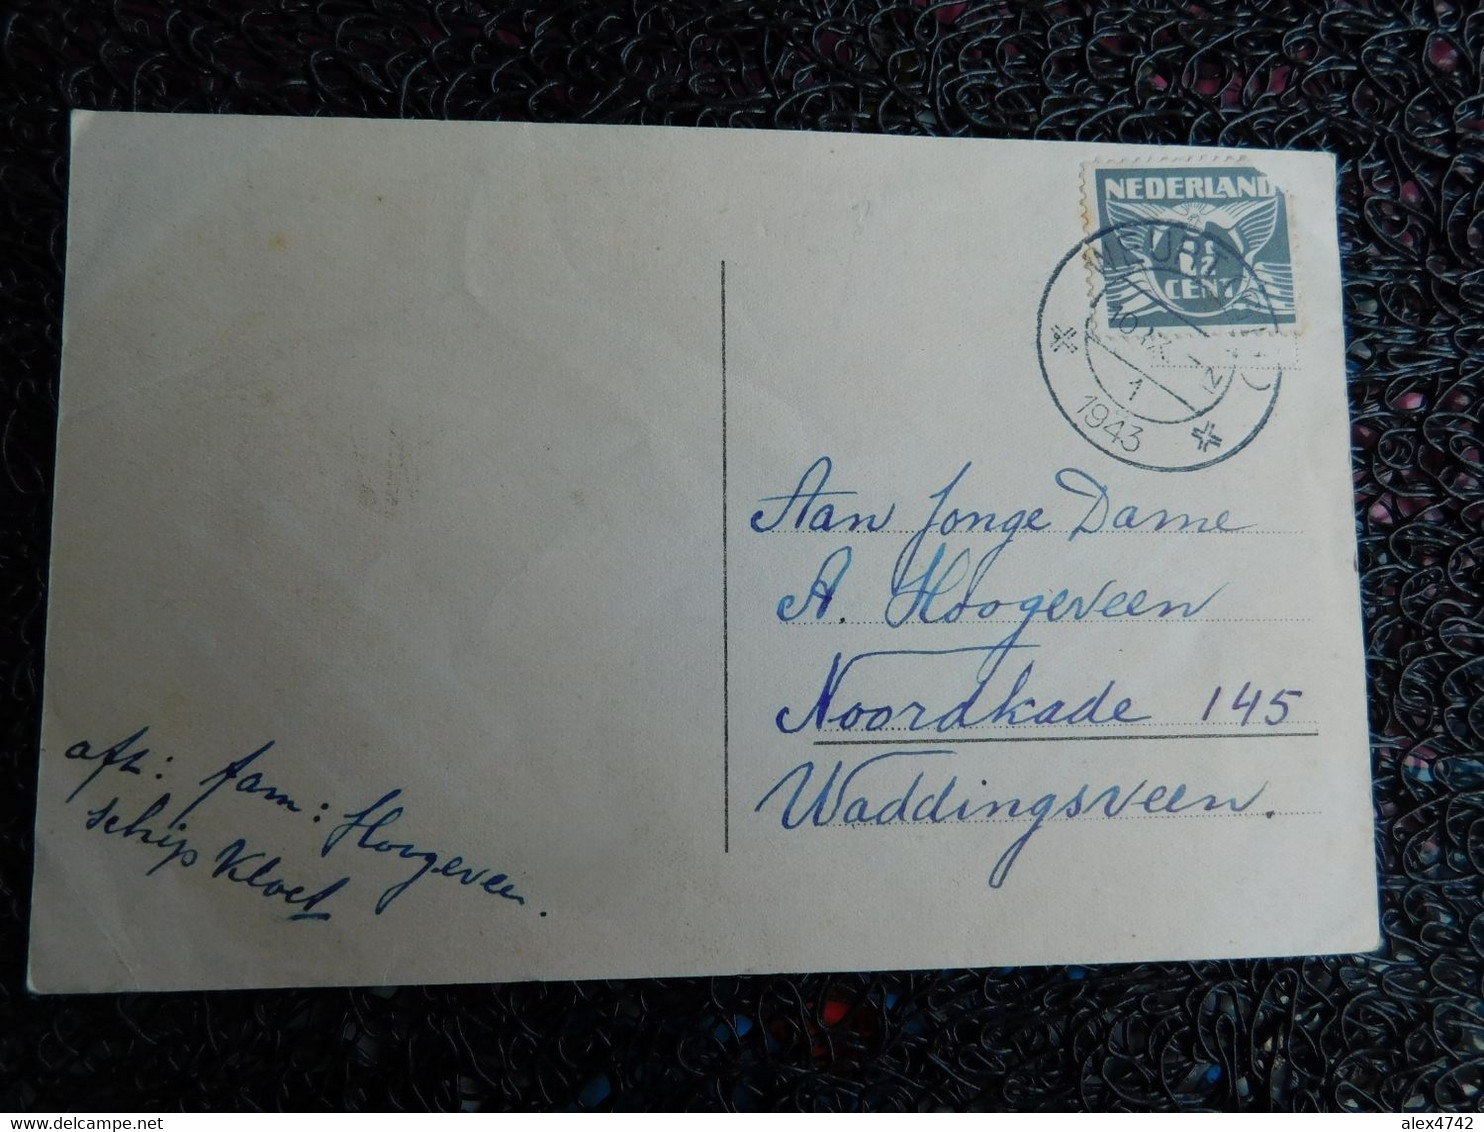 NEDERLAND
CENT
1
1943
Aan Jonge Dame
A. Hoogeveen
Noordkade 145
Waddingsveen.
afz: fam: Hoogeveen.
schip Kloet
delcampe.net
alex4742